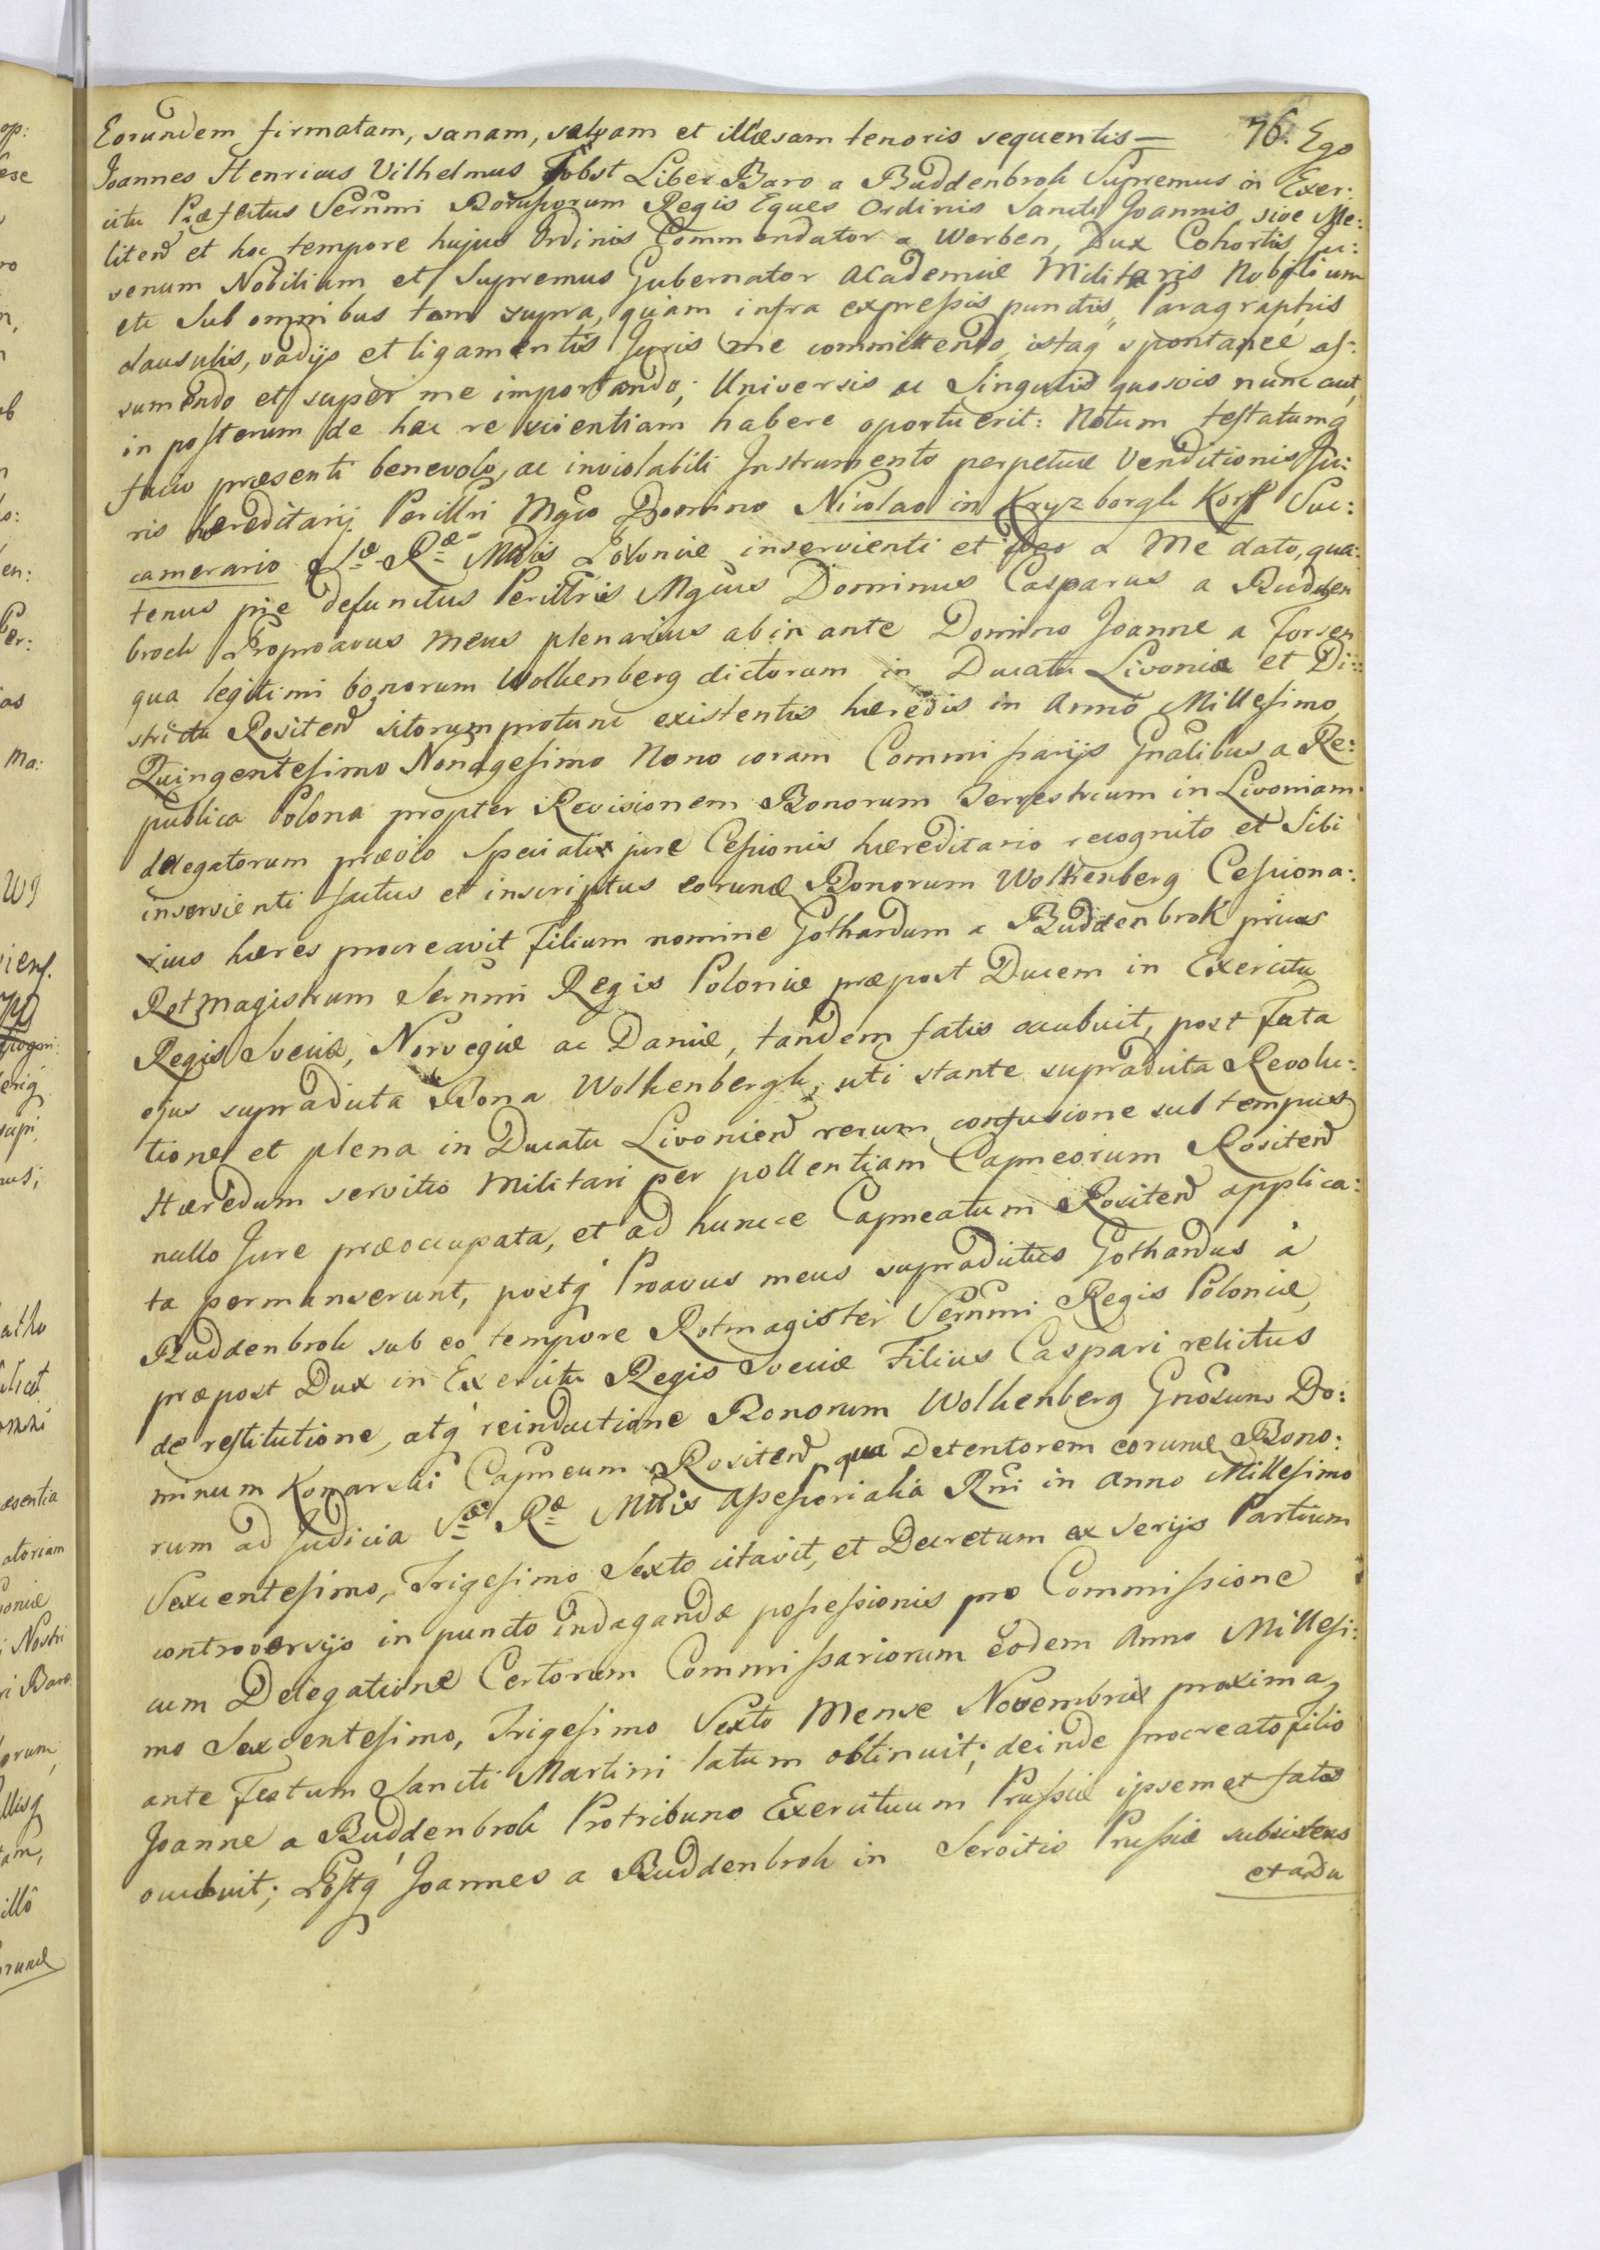 Eorundem firmatam, sanam, salvam et illæsam tenoris sequentis = 76. Ego
Joannes Henricus Vilhelmus Jobst Liber Baro a Buddenbrok Supremus in Exer:
citu Præfectus Serenmi Borussorum Regis Eques Ordinis Sancti Joannis, sive Me:
liten et hoc tempore hujus Ordinis Commendator a Werben, Dux Cohortis Ju:
venum Nobilium et Supremus Gubernator Academiæ Militaris Nobilium
etc Sub omnibus tam supra, quam infra expressis punctis, Paragraphis
clausulis, vadijs et ligamentis Juris me committendo, istaq spontanee as:
sumendo et super me importando; Universis ac Singulis quosvis nunc aut
in posterum de hac re scientiam habere oportuerit: Notum testatumq
facio præsenti benevolo, ac inviolabili Instrumento perpetuæ Venditionis Ju:
ris hæreditarij Perillri Mgco Domino Nicolao in Kryzborgh Korff Suc:
camerario Sæ Ræ Mtis Poloniæ inservienti et a Me dato, qua:
tenus pie defunctus Perillris Mgcus Dominus Casparus a Budden
brock Proproavus meus plenarius ab in ante Domino Joanne a Forsen
qua legitimi bonorum Wolkenberg dictorum in Ducatu Livoniæ et Di:
strictu Rositen sitorum protunc existentis hæredis in Anno Millesimo
Quingentesimo Nonagesimo Nono coram Commissarijs Gnalibus a Re:
publica Polona propter Revisionem Bonorum Terrestrium in Livoniam
delegatorum prævio Speciali jure Cessionis hæreditario recognito et Sibi
inservienti factus et inscriptus eorund Bonorum Wolkenberg Cessiona:
rius hæres procreavit Filium nomine Gothardum a Buddenbrok prius
Rotmagistrum Serenmi Regis Poloniæ præpost Ducem in Exercitu
Regis Sveciæ, Norvegiæ ac Daniæ, tandem fatis occubuit, post Fata
ejus supradicta Bona Wolkenbergk, uti stante supradicta Revolu:
tione et plena in Ducatu Livonien rerum confusione sub tempus
Hæredum servitio Militari per pollentiam Capneorum Rositen
nullo Jure præoccupata, et ad huncce Capneatum Rositen applica:
ta permanserunt, postq Proavus meus supradictus Gothardus à
Buddenbrok sub eo tempore Rotmagister Serenmi Regis Poloniæ,
præpost Dux in Exercitu Regis Sveciæ Filius Caspari relictus
de restitutione, atq reinductione Bonorum Wolkenberg Gnosum Do:
minum Komarski Capneum Rositen qua Detentorem eorund Bono:
rum ad Judicia Sæ Ræ Mtis Assessorialia Rni in Anno Millesimo
Sexcentesimo, Trigesimo Sexto citavit, et Decretum ex Serijs Partium
controversijs in puncto indagandæ possessionis pro Commissione
cum Delegatione Certorum Commissariorum eodem Anno Millesi:
mo Sexcentesimo, Trigesimo Sexto Mense Novembris proxima
ante Festum Sancti Martini latum obtinuit; deinde procreato filio
Joanne a Buddenbrok Protribuno Exercituum Prussiæ ipsemet fatis
occubuit; Postq Joannes a Buddenbrok in Servitio Prussiæ subsistens
et adu